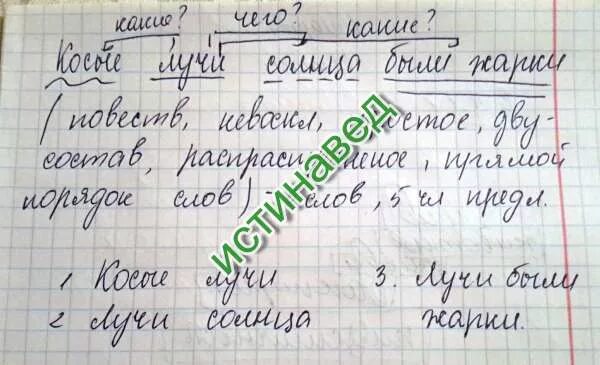 какие? чего? какие?
Косые лучи солнца были жарки
(повеств, невоскл, простое, дву-
состав, распрас ненное, прямой
порядок слов) - слов, 5 чл предл.
ИСТИНАВЕД
1 Косые лучи
2 Лучи солнца
3. Лучи были
жарки.